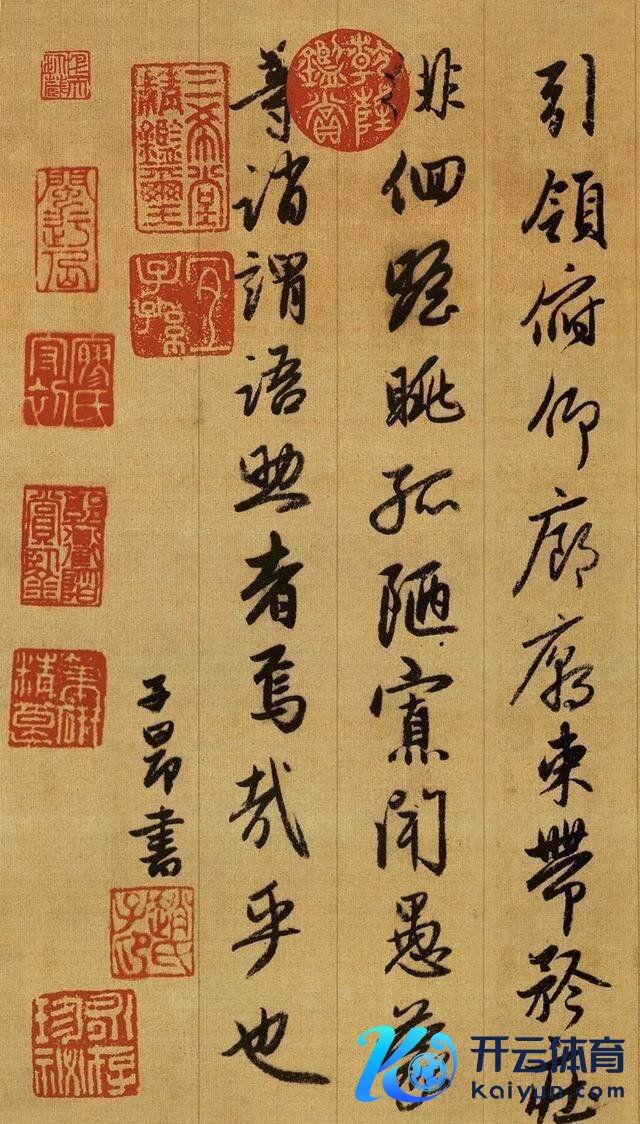 引領俯仰廊廟束帶矜莊
徘徊瞻眺孤陋寡聞愚蒙
等誚謂語助者焉哉乎也
子昂書
乾隆鑑賞
三希堂精鑑璽
宜子孫
趙氏子昂
开云体育
Kaiyun.com